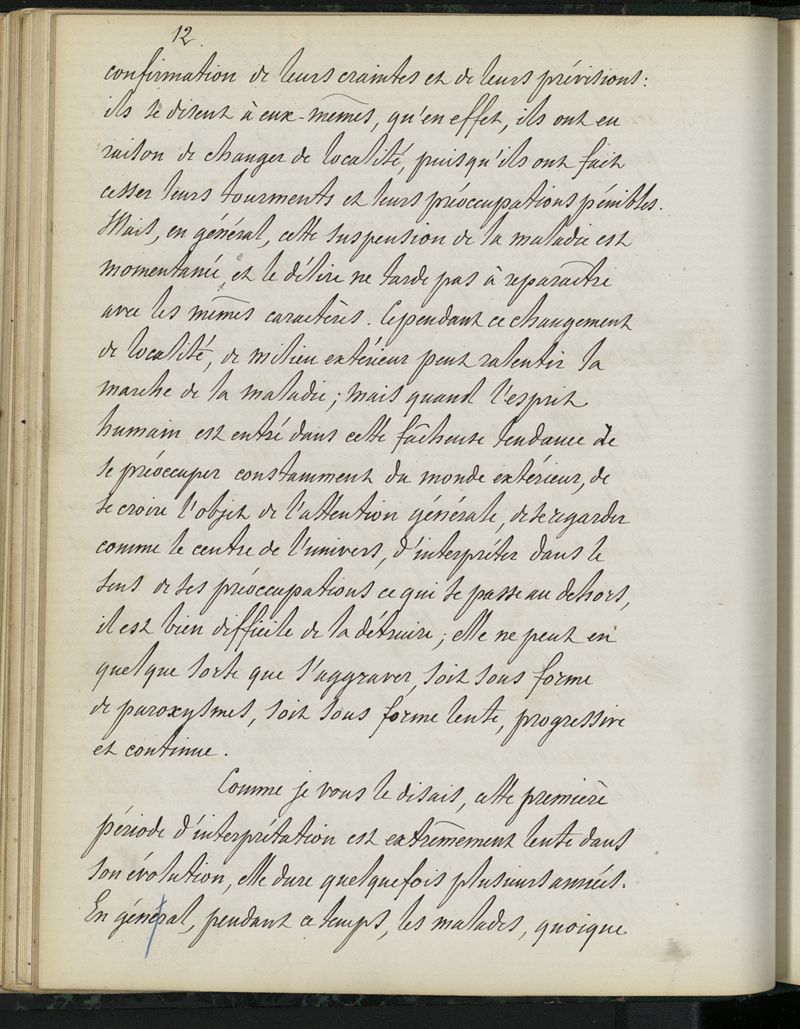 12
confirmation de leurs craintes et de leurs prévisions :
ils se disent à eux-mêmes, qu'en effet, ils ont eu
raison de changer de localité, puisqu'ils ont fait
cesser leurs tourments et leurs préoccupations pénibles.
Mais, en général, cette suspension de la maladie est
momentanée, et le délire ne tarde pas à reparaître
avec les mêmes caractères. Cependant ce changement
de localité, de milieu extérieur peut ralentir la
marche de la maladie ; mais quand l'esprit
humain est entré dans cette fâcheuse tendance de
se préoccuper constamment du monde extérieur, de
se croire l'objet de l'attention générale, de se regarder
comme le centre de l'univers, d'interpréter dans le
sens de ses préoccupations ce qui se passe au dehors,
il est bien difficile de la détruire ; elle ne peut en
quelque sorte que s'aggraver, soit sous forme
de paroxysmes, soit sous forme lente, progressive
et continue.
Comme je vous le disais, cette première
période d'interprétation est extrêmement lente dans
son évolution, elle dure quelquefois plusieurs années.
En général, pendant ce temps, les malades, quoique